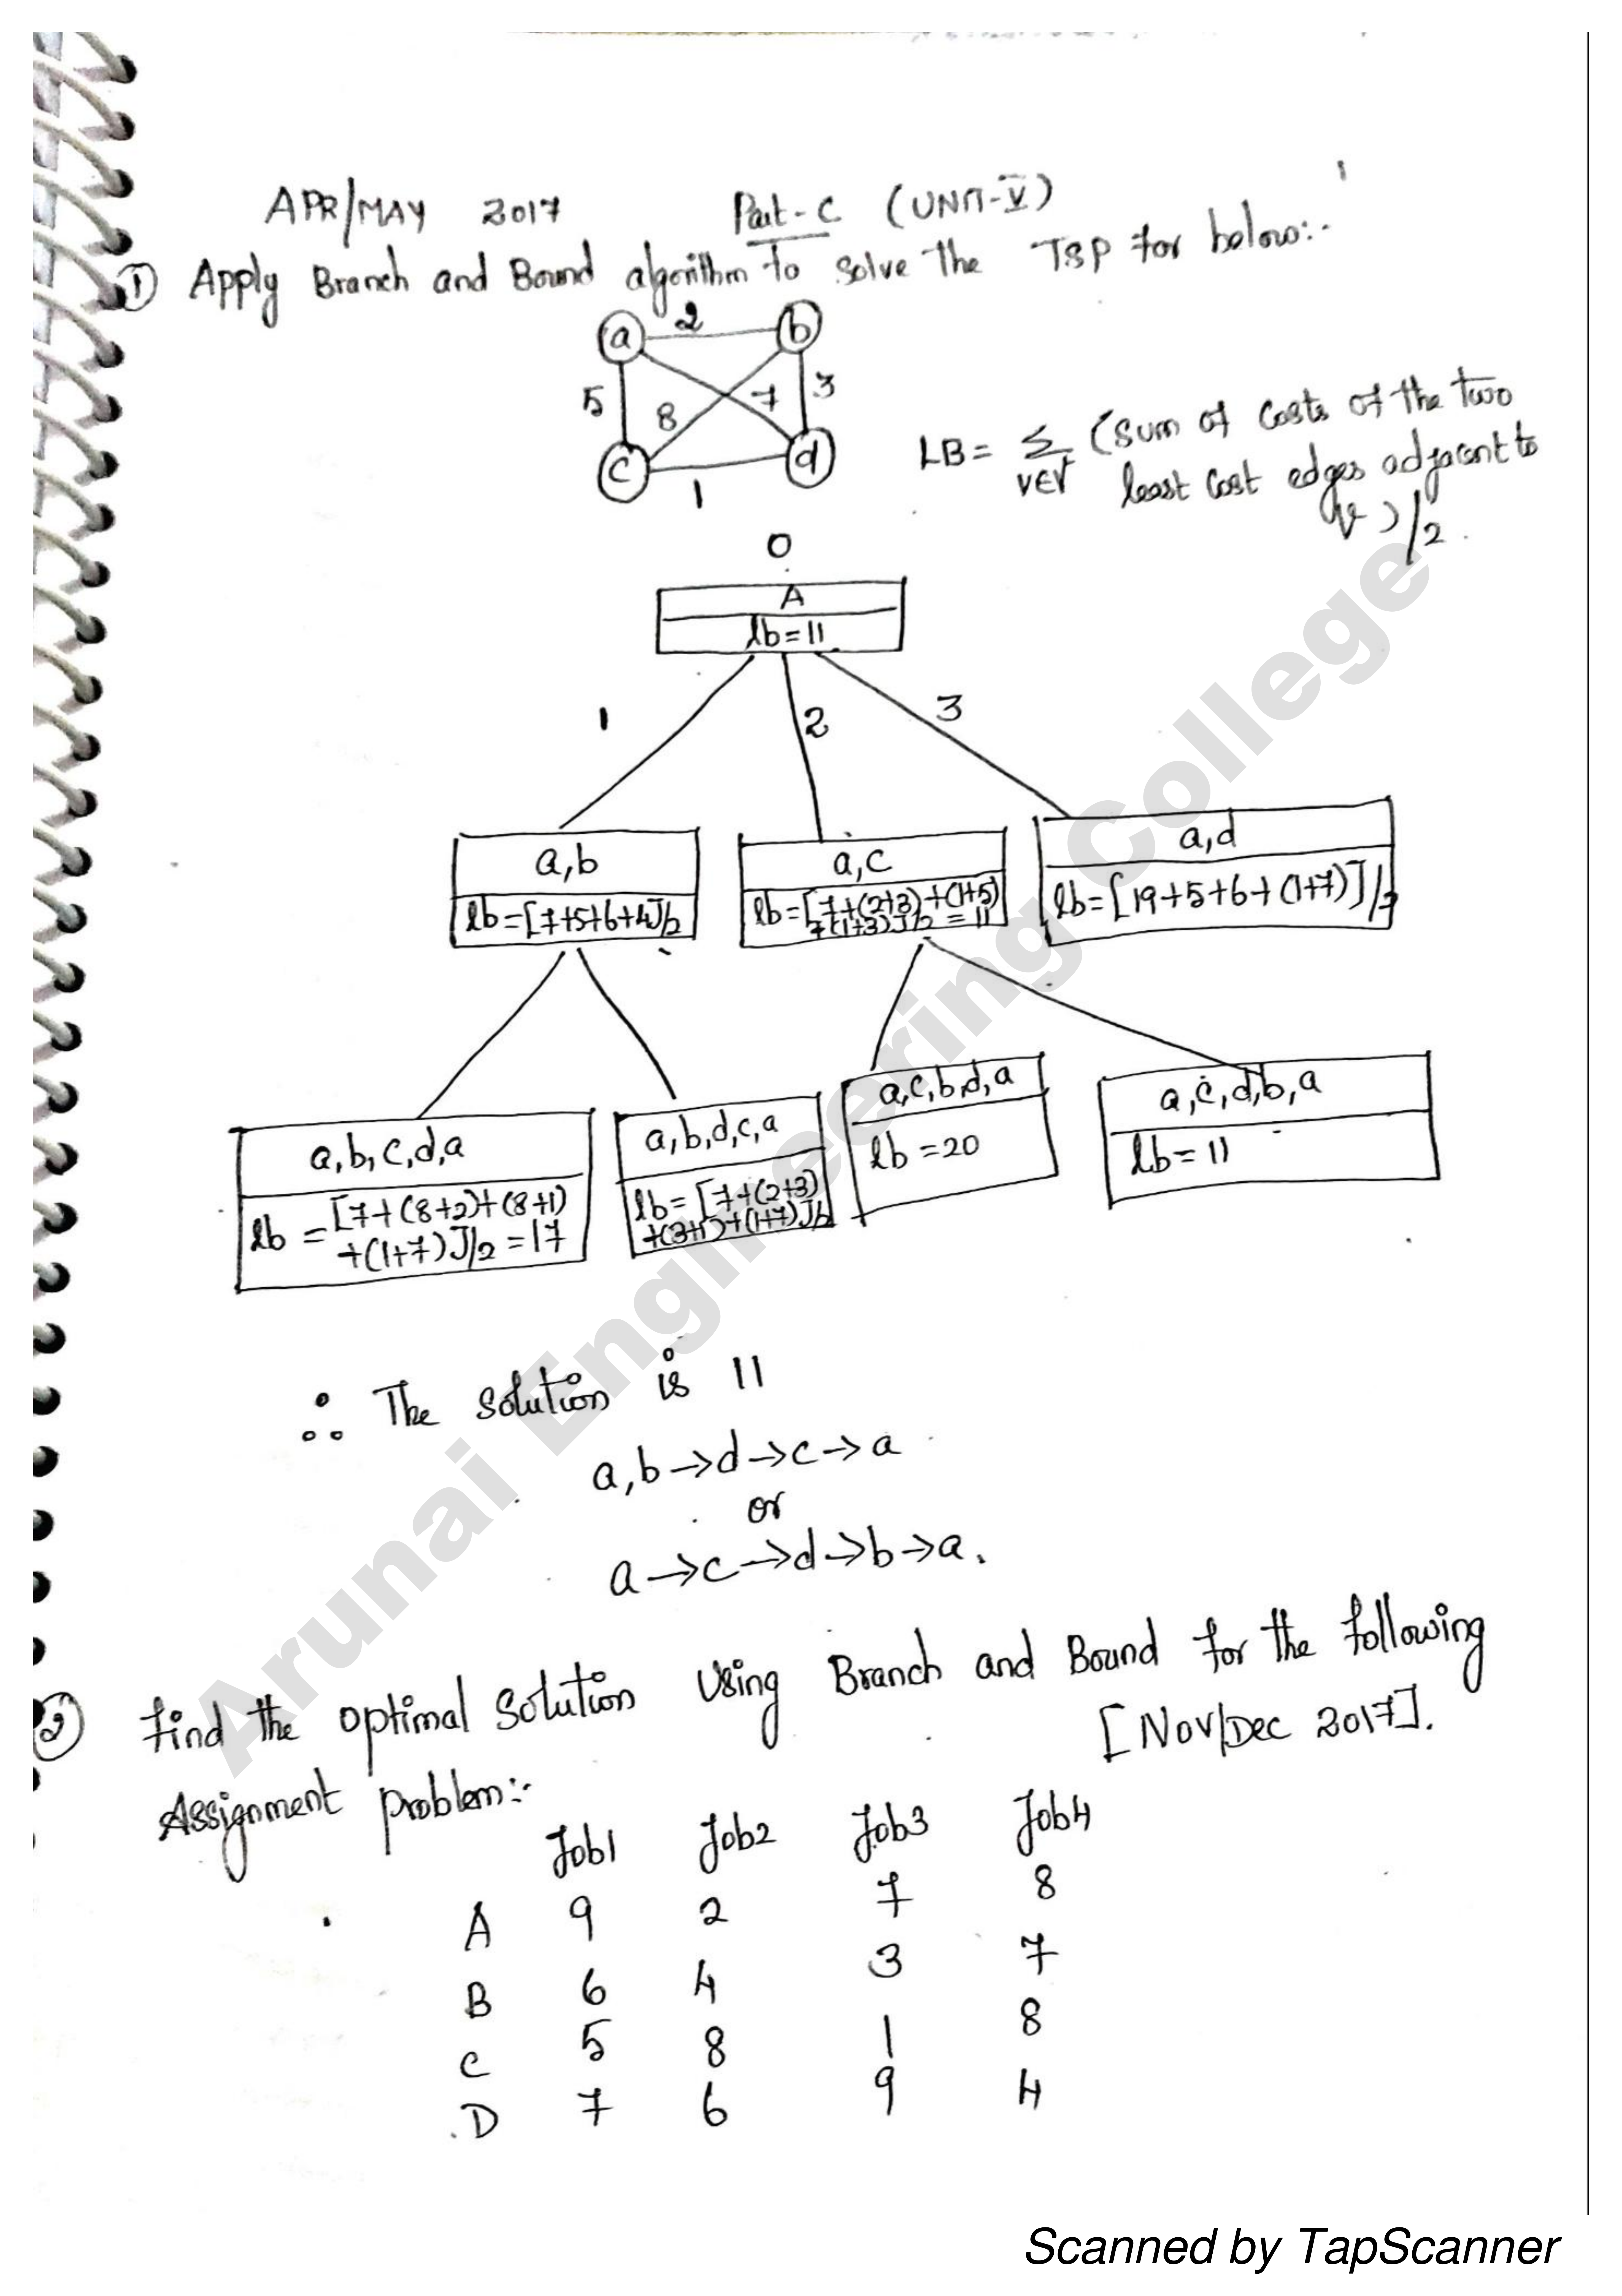 APR/MAY 2017 Part-C (UNIT-V)
① Apply Branch and Bound algorithm to solve the TSP for below:-
a 2 b
5 8 7 3
c 1 d
LB = Σ (Sum of Costs of the two
v∈V least cost edges adjacent to
v)/2.
0
A
lb=11
1 2 3
a,b
lb=[7+5+6+4]/2
a,c
lb=[7+(2+3)+(1+5)
+(1+3)]/2 = 11
a,d
lb=[19+5+6+(1+7)]/2
a,b,c,d,a
lb = [7+(8+2)+(8+1)
+(1+7)]/2 = 17
a,b,d,c,a
lb=[7+(2+3)
+(3+1)+(1+7)]/2
a,c,b,d,a
lb=20
a,c,d,b,a
lb=11
∴ The solution is 11
a,b→d→c→a
or
a→c→d→b→a.
② Find the optimal solution Using Branch and Bound for the following
Assignment problem:- [Nov/Dec 2017].
Job1 Job2 Job3 Job4
A 9 2 7 8
B 6 4 3 7
C 5 8 1 8
D 7 6 9 4
Arunai Engineering College
Scanned by TapScanner